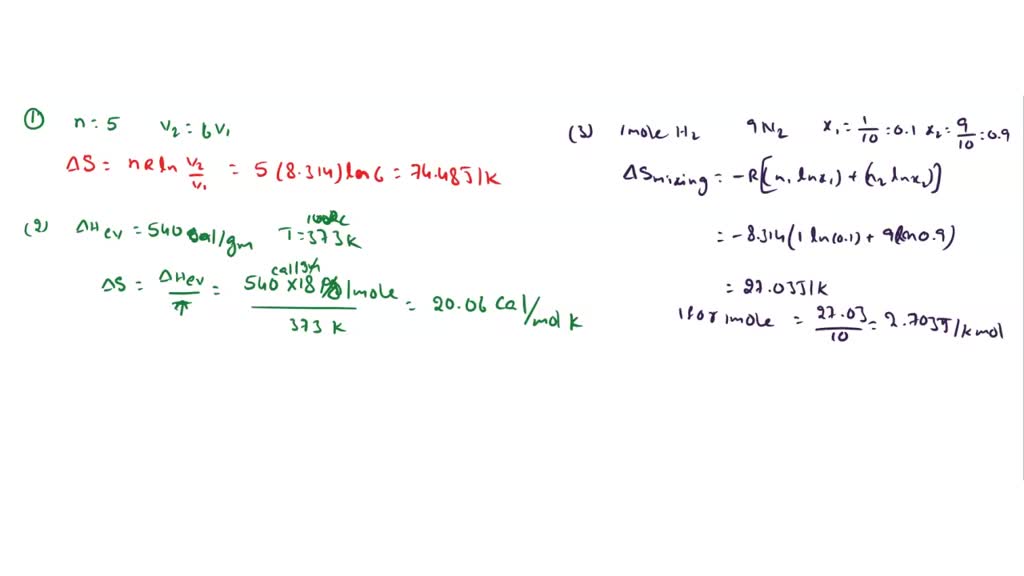 (1) n = 5 V2 = 6V1
ΔS = nR ln V2/V1 = 5 (8.314) ln 6 = 74.48 J/K
(2) ΔHev = 540 cal/gm T = 373 K
ΔS = ΔHev/T = 540 × 18 /mole / 373 K = 20.06 cal/mol K
(3) 1 mole H2 9 N2 x1 = 1/10 = 0.1 x2 = 9/10 = 0.9
ΔSmixing = -R[(n1 lnx1) + (n2 lnx2)]
= -8.314 (1 ln(0.1) + 9 ln 0.9)
= 27.03 J/K
for 1 mole = 27.03/10 = 2.703 J/K mol